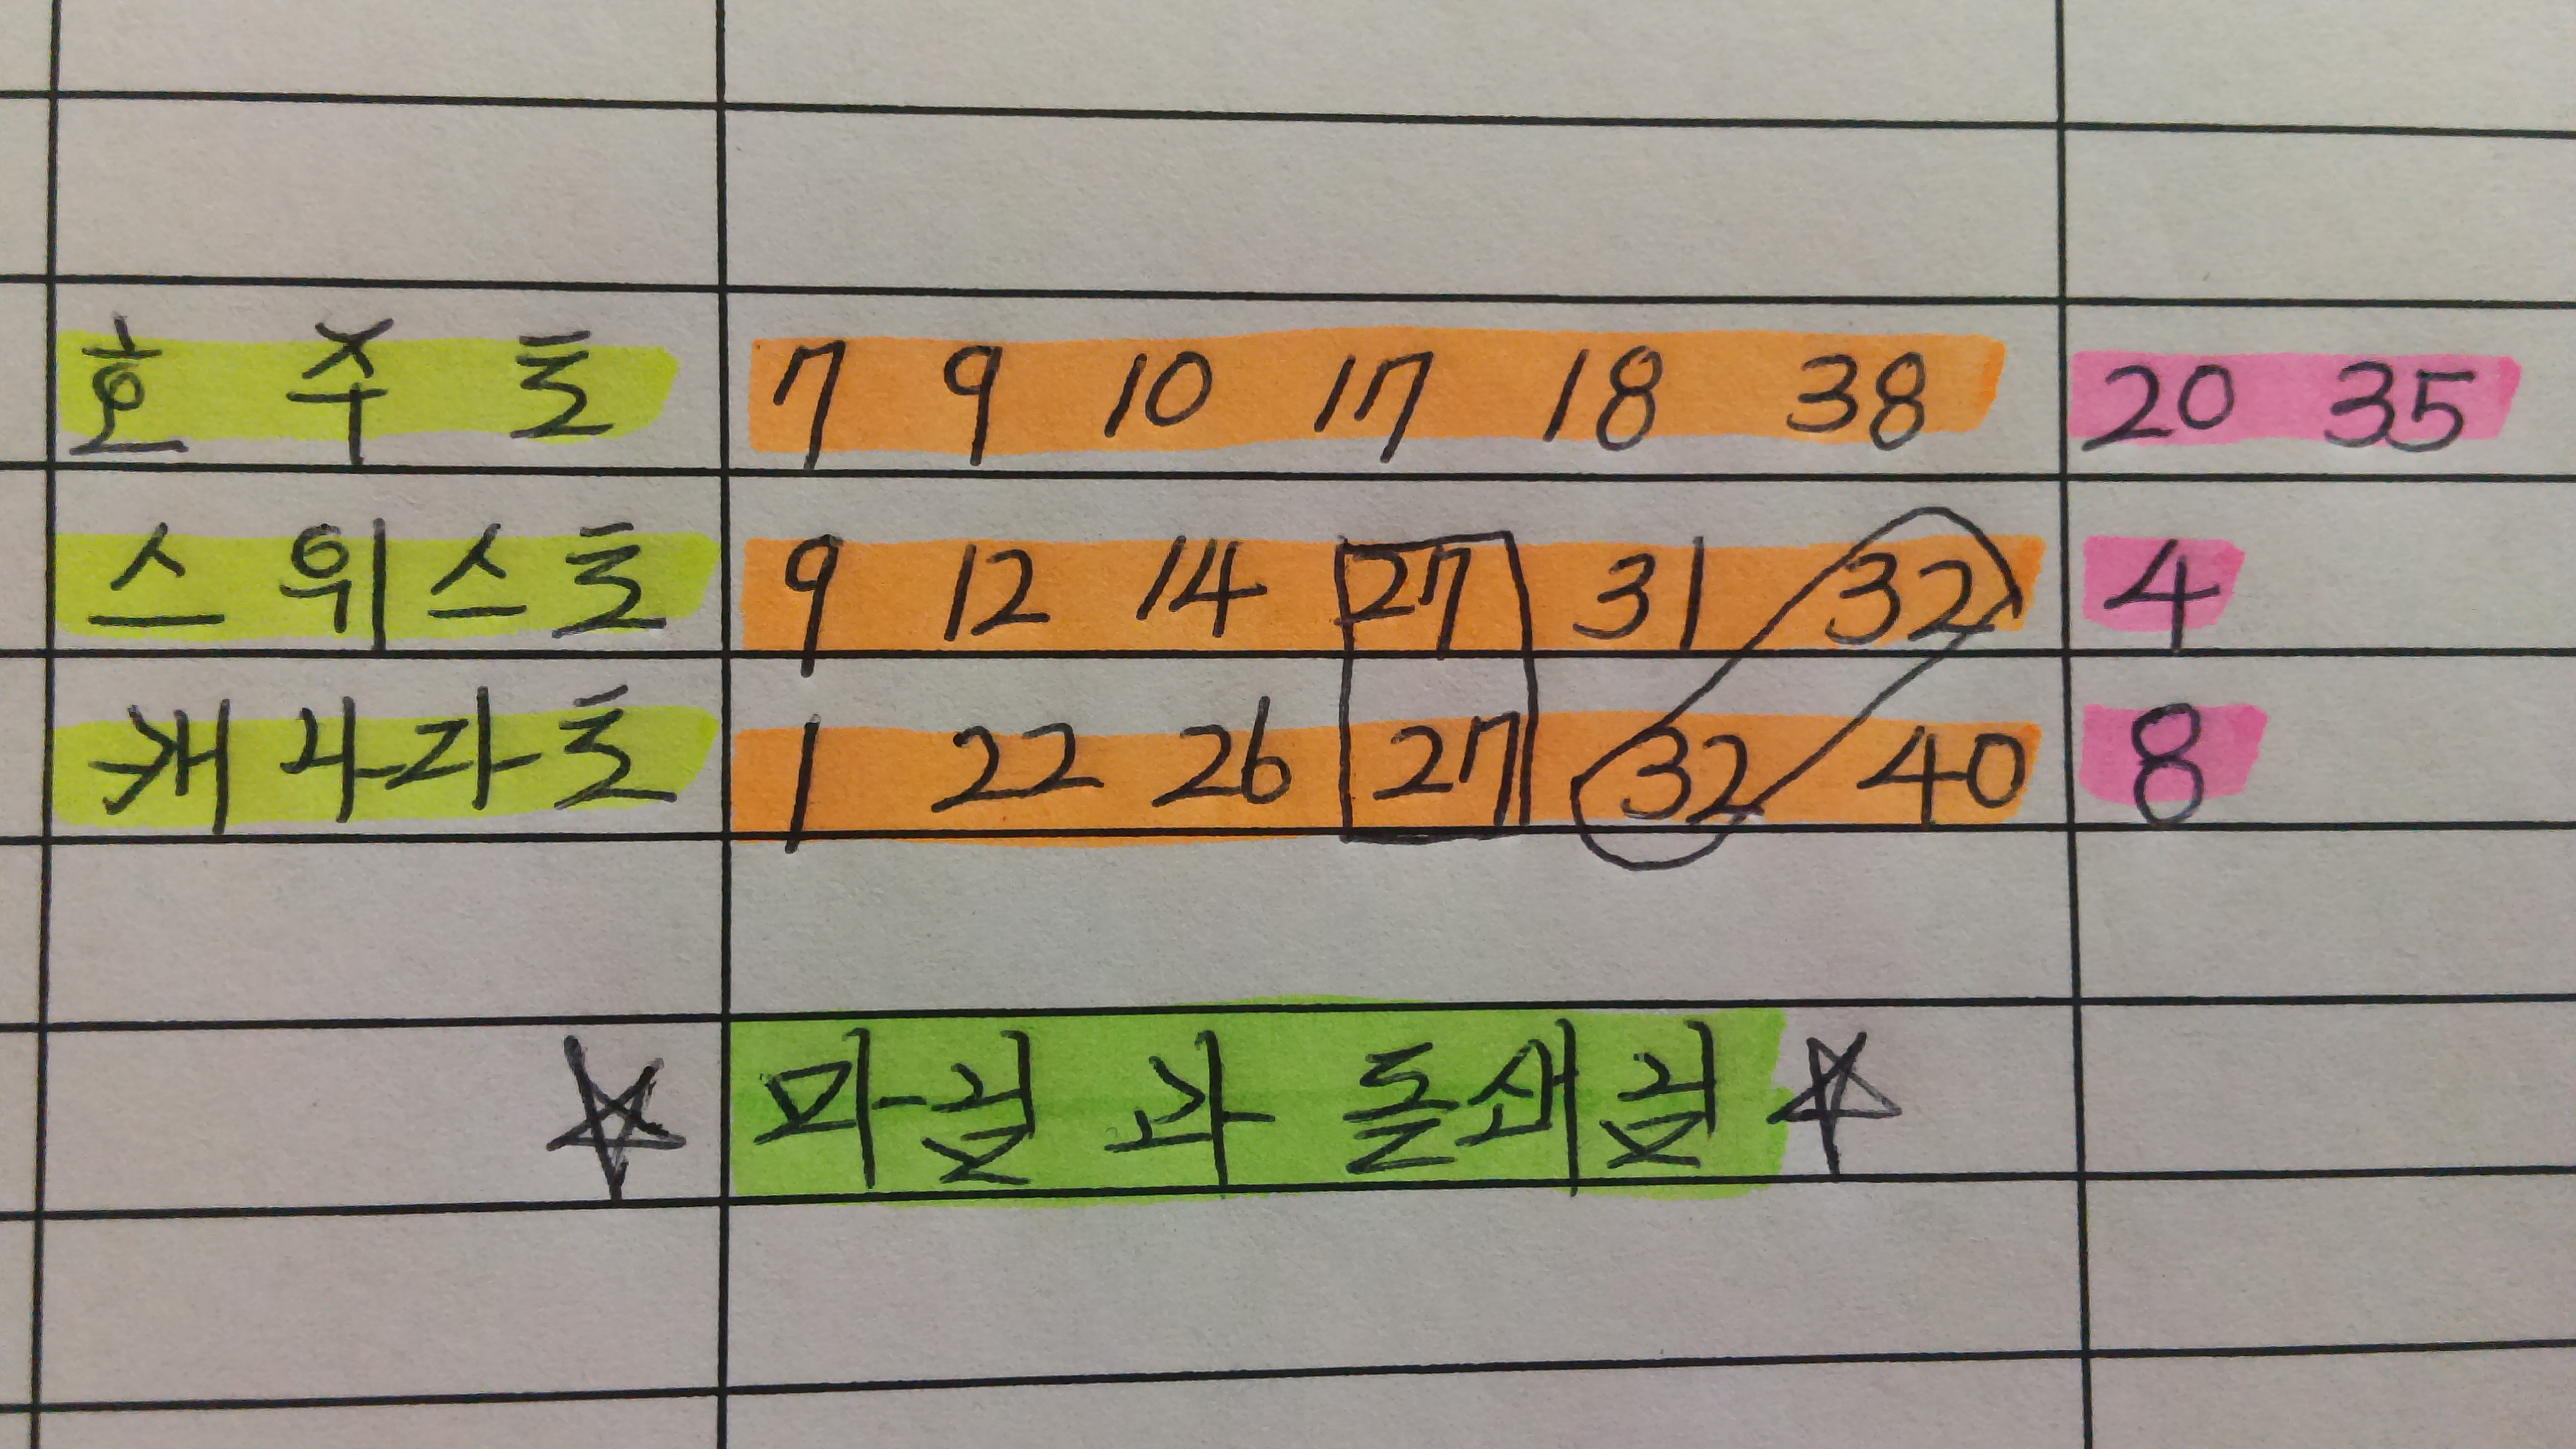 호주토 7 9 10 17 18 38 20 35
스위스토 9 12 14 27 31 32 4
캐나다토 1 22 26 27 32 40 8
마질과 돌쇄짐